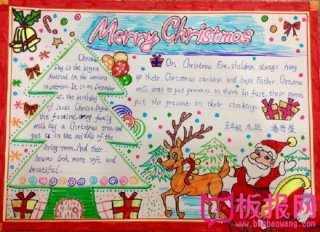 Merry Christmas
On Christmas Eve, children always hang
up their Christmas stockings and hope Father Christmas
will come to put presents in. In fact, their parents
put the presents in their stockings
Christmas
Day is the biggest
festival in the western
countries. It is on December
25, the birthday
of Jesus Christ. Before
the festival, every family
will buy a Christmas tree, and
put it in the middle of the
living-room. And their
houses look more soft and
beautiful.
板报网
www.banbaowang.com